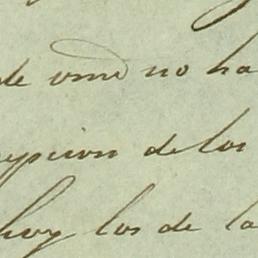 de vmd no ha
epcion de los
hoy los de la